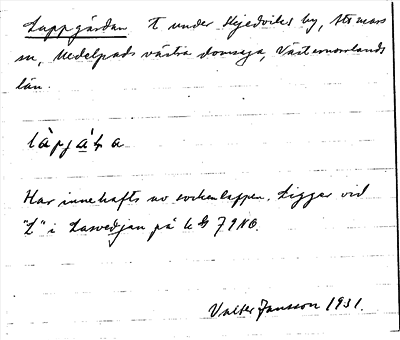 Lappgården t under Hjedvikes by, Atmars
sn, Medelpads västra domsaga, Västernorrlands
län.
Har innehafts av sockenlappen. Ligger vid
"L" i Lasvedjan på k bl 79 NO.
Valter Jansson 1931.